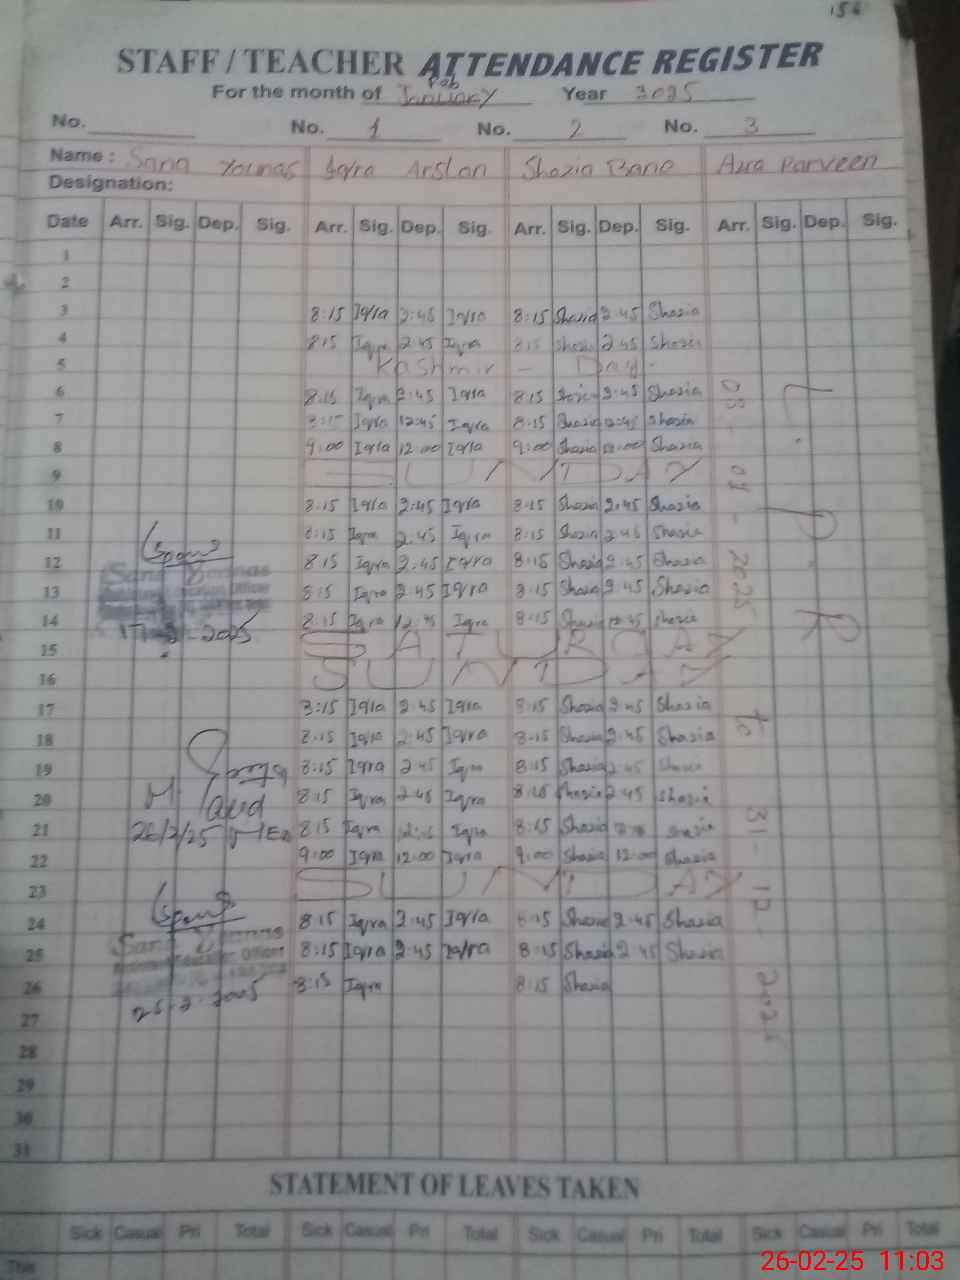 156
STAFF / TEACHER ATTENDANCE REGISTER
Feb
For the month of January Year 2025
No. No. 1 No. 2 No. 3
Name : Sana Younas Iqra Arslan Shazia Bano Azra Parveen
Designation:
Date Arr. Sig. Dep. Sig. Arr. Sig. Dep. Sig. Arr. Sig. Dep. Sig. Arr. Sig. Dep. Sig.
1
2
3 8:15 Iqra 2:45 Iqra 8:15 Shazia 2:45 Shazia
4 8:15 Iqra 2:45 Iqra 8:15 Shazia 2:45 Shazia
5 Kashmir - Day.
6 8:15 Iqra 2:45 Iqra 8:15 Shazia 2:45 Shazia
7 8:15 Iqra 12:45 Iqra 8:15 Shazia 12:45 Shazia
8 9:00 Iqra 12:00 Iqra 9:00 Shazia 12:00 Shazia
9 SUNDAY
10 8:15 Iqra 2:45 Iqra 8:15 Shazia 2:45 Shazia
11 8:15 Iqra 2:45 Iqra 8:15 Shazia 2:45 Shazia
12 8:15 Iqra 2:45 Iqra 8:15 Shazia 2:45 Shazia
13 8:15 Iqra 2:45 Iqra 8:15 Shazia 2:45 Shazia
14 8:15 Iqra 12:45 Iqra 8:15 Shazia 12:45 Shazia
15 SATURDAY
16 SUNDAY
17 8:15 Iqra 2:45 Iqra 8:15 Shazia 2:45 Shazia
18 8:15 Iqra 2:45 Iqra 8:15 Shazia 2:45 Shazia
19 8:15 Iqra 2:45 Iqra 8:15 Shazia 2:45 Shazia
20 8:15 Iqra 2:45 Iqra 8:15 Shazia 2:45 Shazia
21 8:15 Iqra Iqra 8:15 Shazia Shazia
22 9:00 Iqra 12:00 Iqra 9:00 Shazia 12:00 Shazia
23 SUNDAY
24 8:15 Iqra 2:45 Iqra 8:15 Shazia 2:45 Shazia
25 8:15 Iqra 2:45 Iqra 8:15 Shazia 2:45 Shazia
26 8:15 Iqra 8:15 Shazia
27
28
29
30
31
Sana Younas
17-2-2025
26/2/25
Sana Younas
25-2-2025
L.P.R
to 31-12-2025
STATEMENT OF LEAVES TAKEN
Sick Casual Pri Total Sick Casual Pri Total Sick Casual Pri Total Sick Casual Pri Total
This
26-02-25 11:03